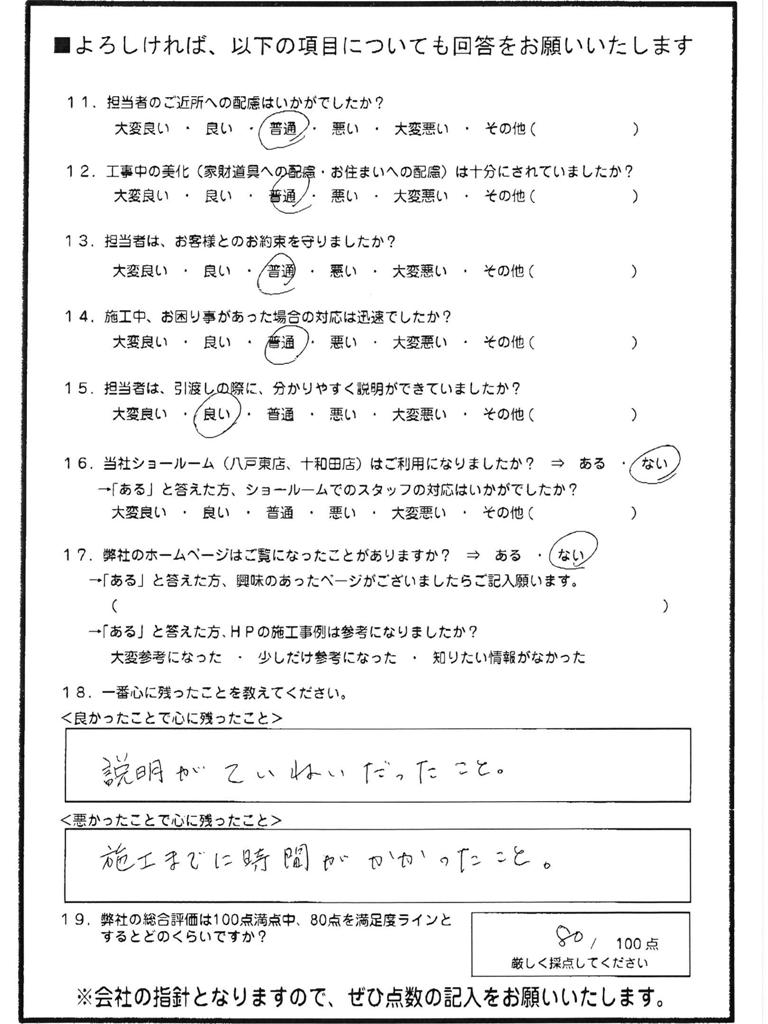 ■よろしければ、以下の項目についても回答をお願いいたします
11．担当者のご近所への配慮はいかがでしたか？
大変良い ・ 良い ・ 普通 ・ 悪い ・ 大変悪い ・ その他（　　　　　　）
12．工事中の美化（家財道具への配慮・お住まいへの配慮）は十分にされていましたか？
大変良い ・ 良い ・ 普通 ・ 悪い ・ 大変悪い ・ その他（　　　　　　）
13．担当者は、お客様とのお約束を守りましたか？
大変良い ・ 良い ・ 普通 ・ 悪い ・ 大変悪い ・ その他（　　　　　　）
14．施工中、お困り事があった場合の対応は迅速でしたか？
大変良い ・ 良い ・ 普通 ・ 悪い ・ 大変悪い ・ その他（　　　　　　）
15．担当者は、引渡しの際に、分かりやすく説明ができていましたか？
大変良い ・ 良い ・ 普通 ・ 悪い ・ 大変悪い ・ その他（　　　　　　）
16．当社ショールーム（八戸東店、十和田店）はご利用になりましたか？ ⇒ ある ・ ない
→「ある」と答えた方、ショールームでのスタッフの対応はいかがでしたか？
大変良い ・ 良い ・ 普通 ・ 悪い ・ 大変悪い ・ その他（　　　　　　）
17．弊社のホームページはご覧になったことがありますか？ ⇒ ある ・ ない
→「ある」と答えた方、興味のあったページがございましたらご記入願います。
（　　　　　　　　　　　　　　　　　　　　）
→「ある」と答えた方、HPの施工事例は参考になりましたか？
大変参考になった ・ 少しだけ参考になった ・ 知りたい情報がなかった
18．一番心に残ったことを教えてください。
＜良かったことで心に残ったこと＞
説明がていねいだったこと。
＜悪かったことで心に残ったこと＞
施工までに時間がかかったこと。
19．弊社の総合評価は100点満点中、80点を満足度ラインと
するとどのくらいですか？
80 / 100点
厳しく採点してください
※会社の指針となりますので、ぜひ点数の記入をお願いいたします。